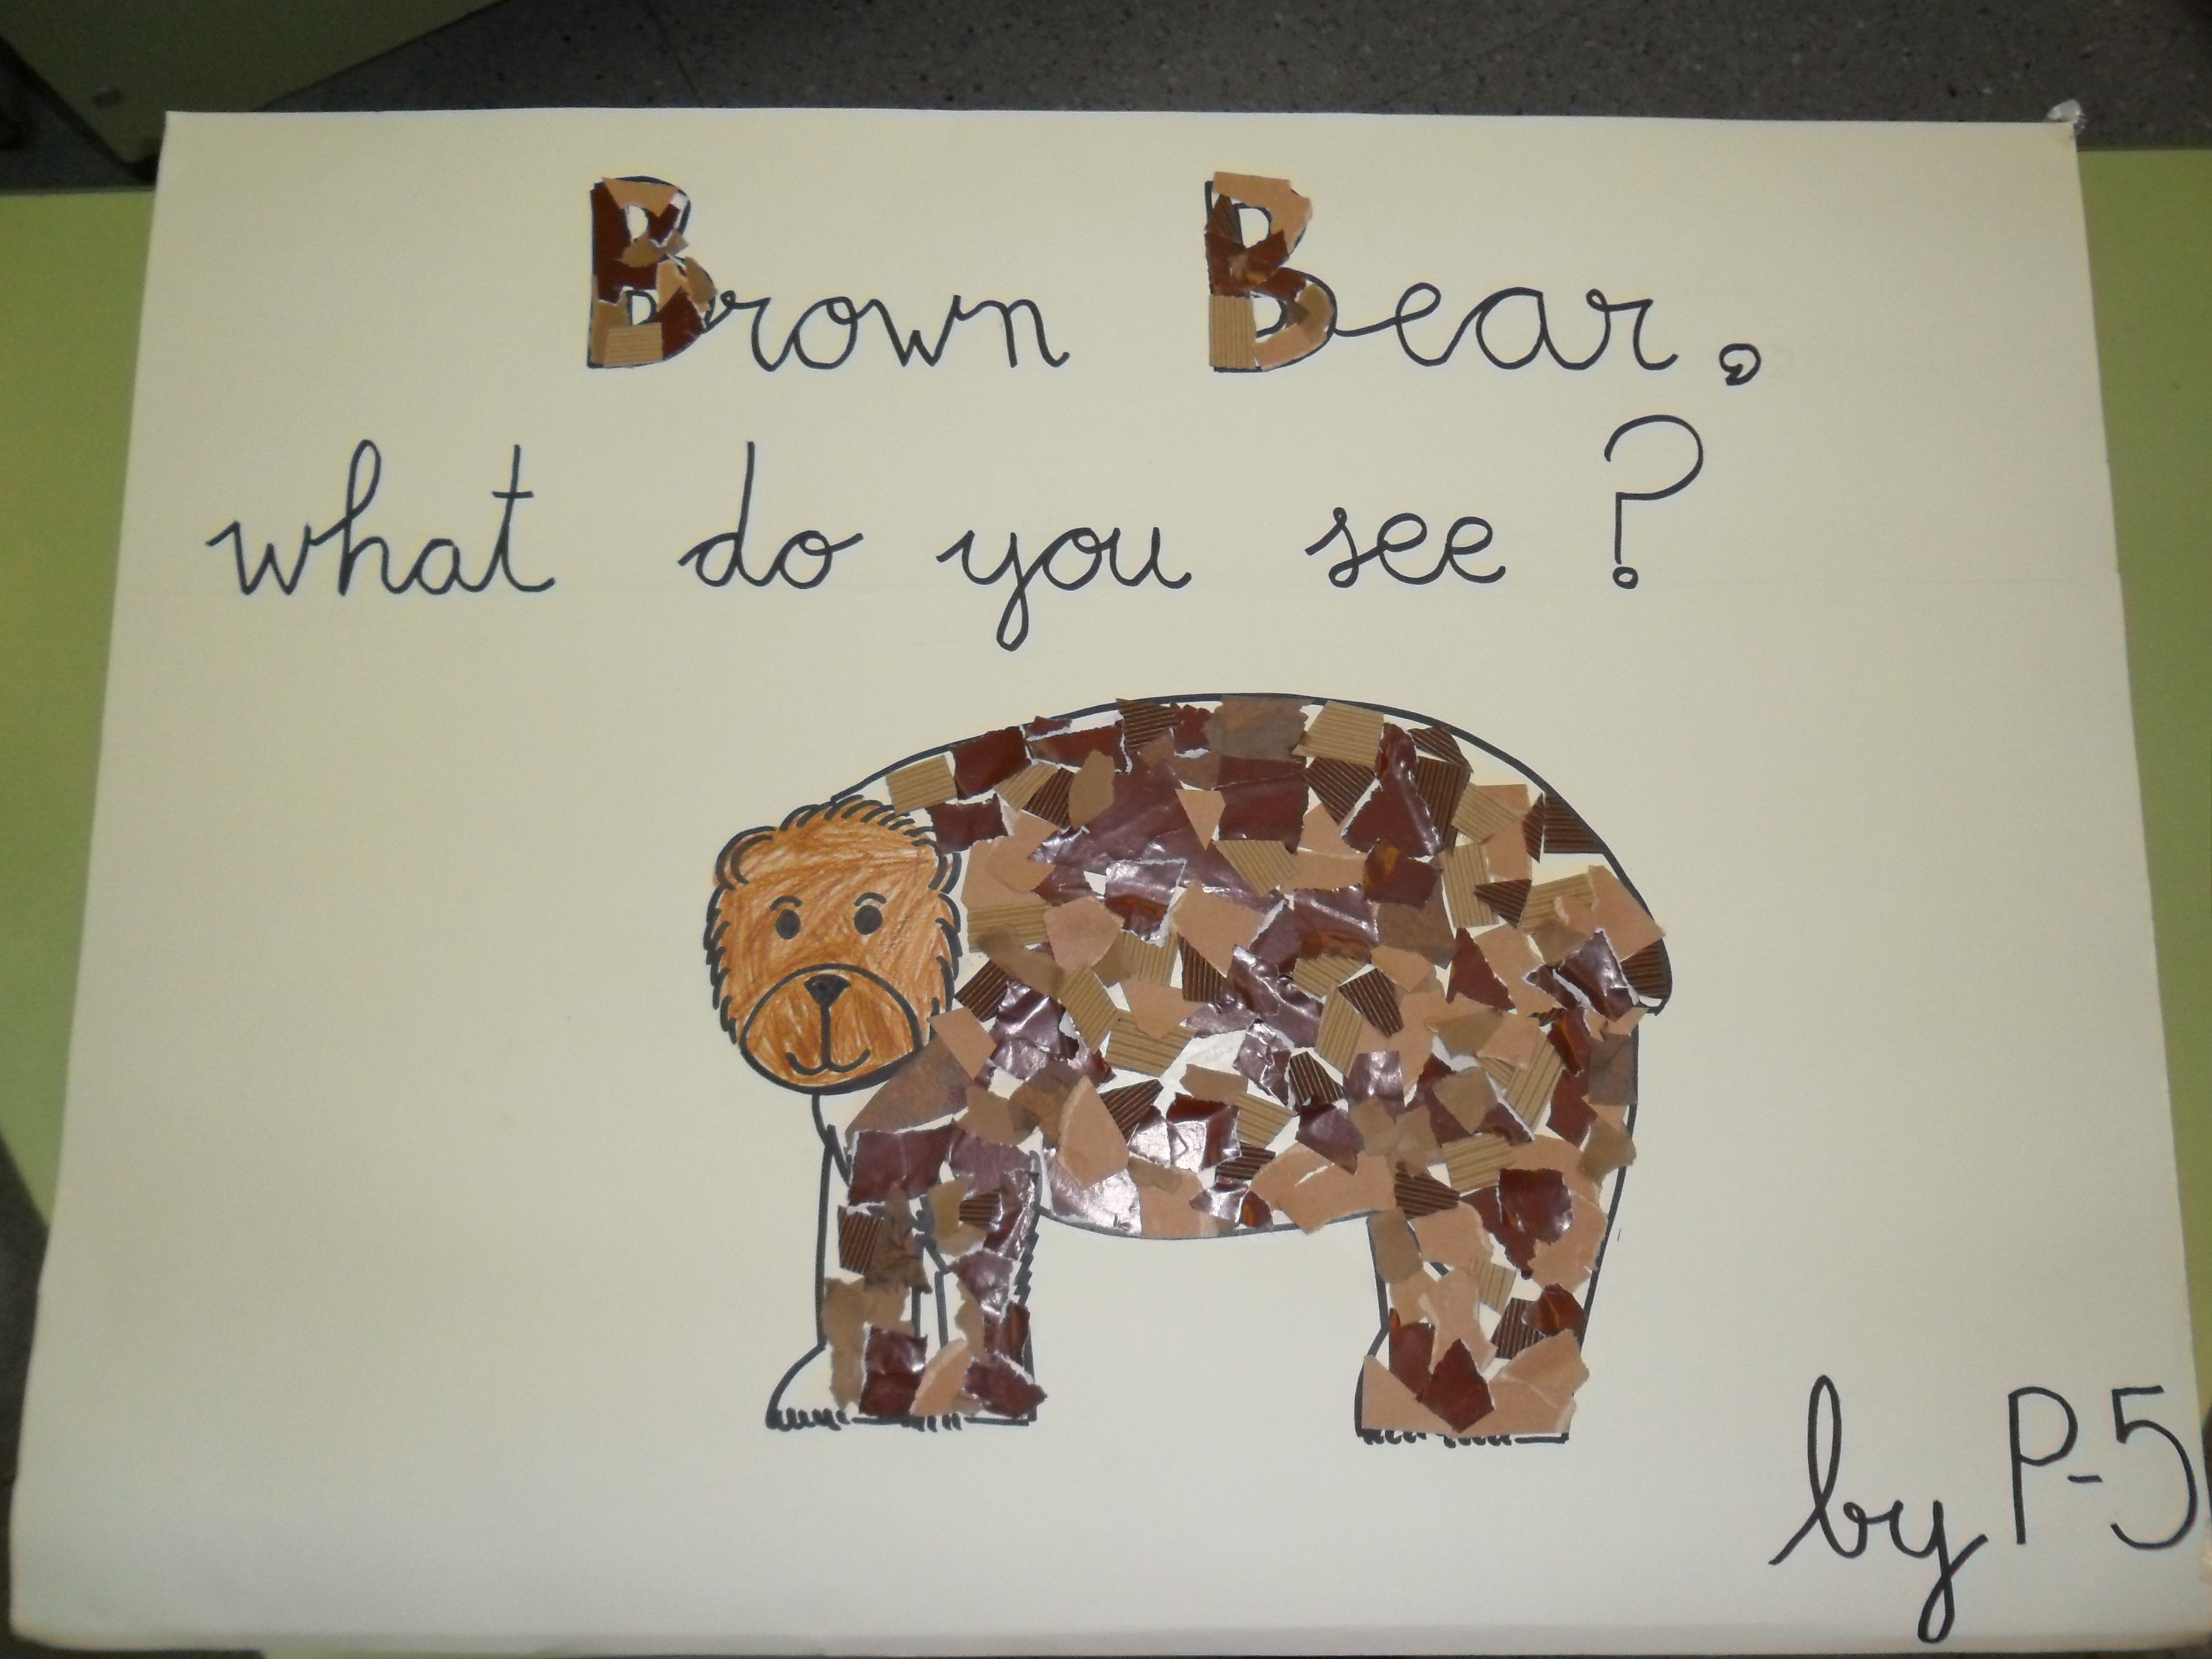 Brown Bear,
what do you see?
by P-5